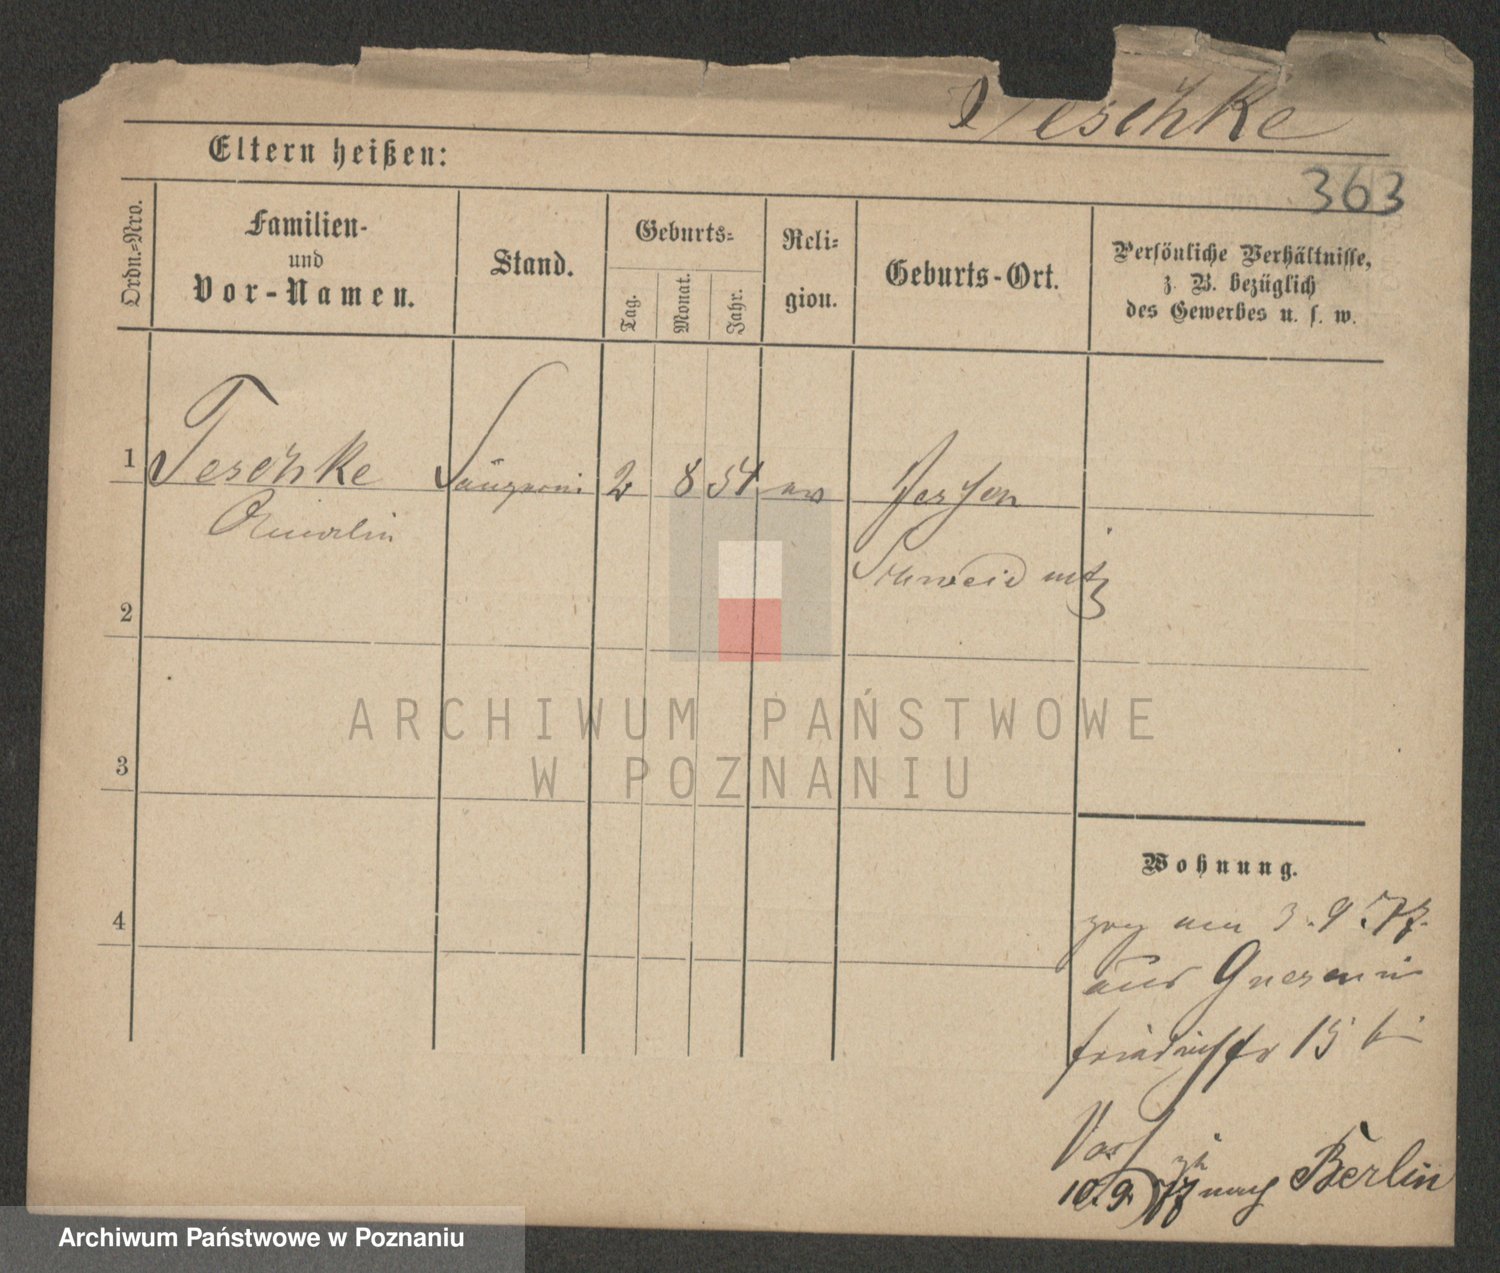 Teschke
Eltern heißen:
363
Ordn.=Nro.
Familien-
und
Vor-Namen.
Stand.
Geburts=
Tag.
Monat.
Jahr.
Reli=
gion.
Geburts-Ort.
Persönliche Verhältnisse,
z. B. bezüglich
des Gewerbes u. s. w.
1 Teschke Sängerin 2 8 54 ev
Schweidnitz
2
3
4
ARCHIWUM PAŃSTWOWE
W POZNANIU
Wohnung.
zog am 3.9.77.
aus Gnesen in
Friedrichstr 15 bei
10.9.77 nach Berlin
Archiwum Państwowe w Poznaniu